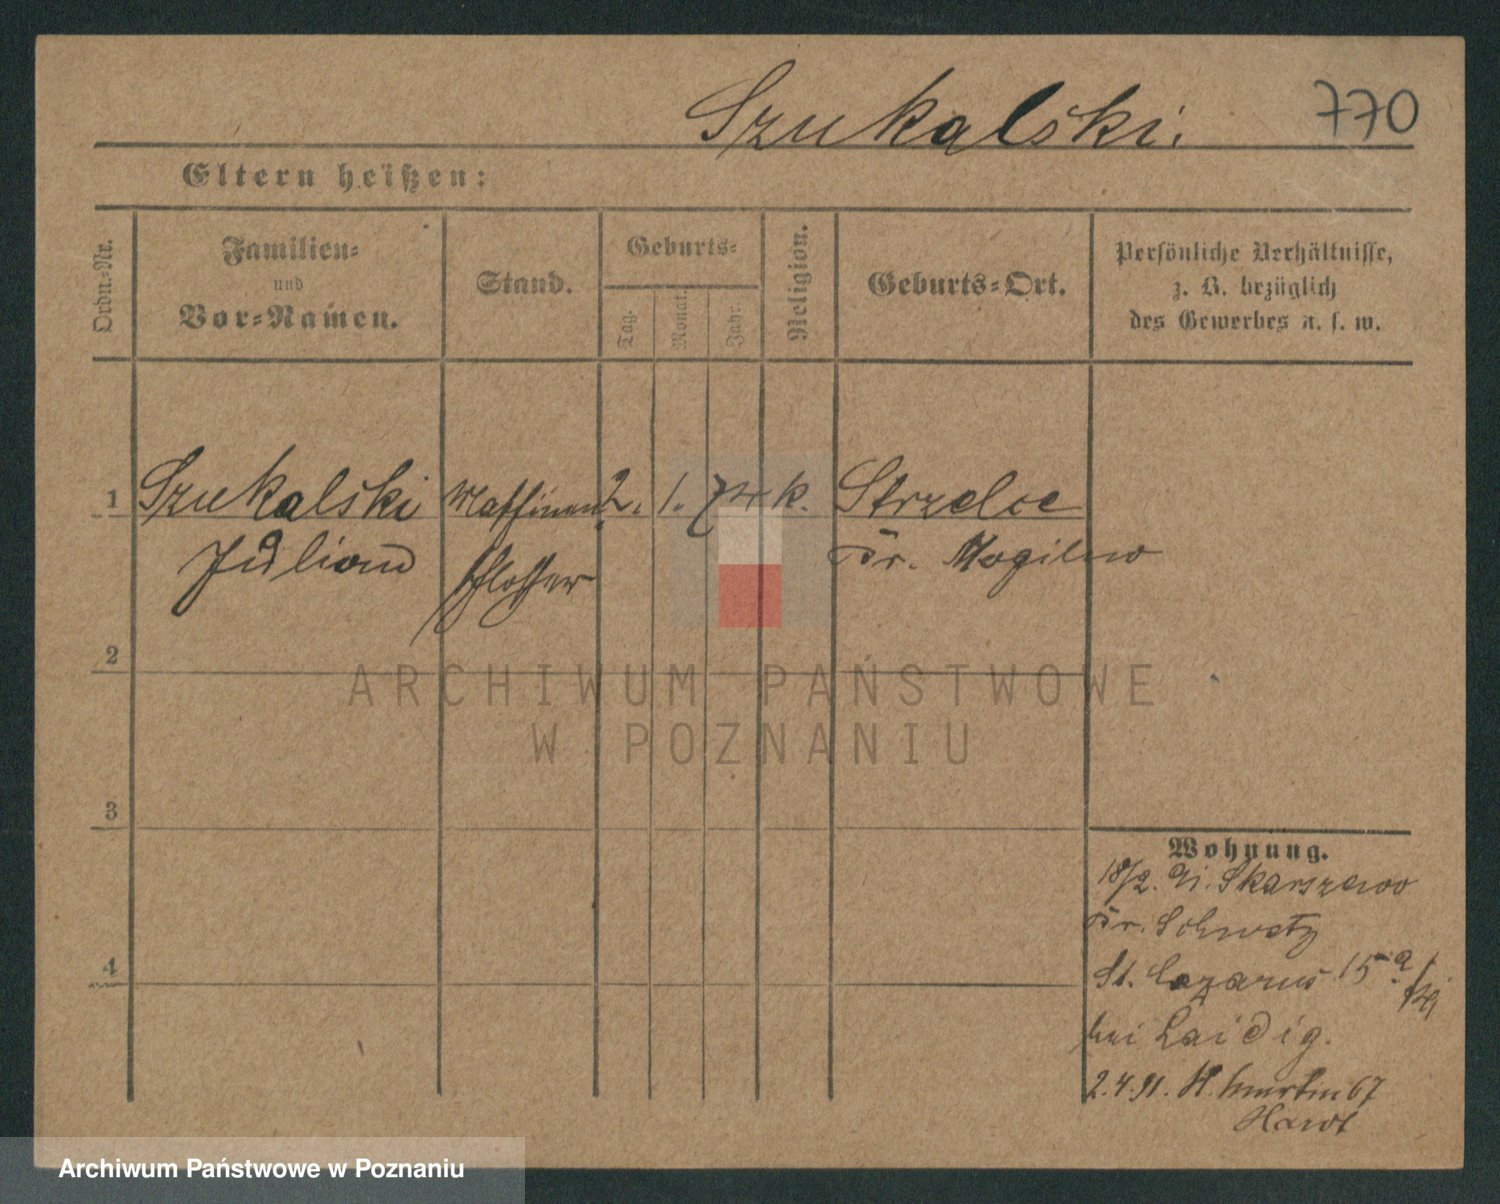 Szukalski.
770
Eltern heißen:
Ordn.-Nr.
Familien-
und
Vor-Namen.
Stand.
Geburts-
Tag.
Monat.
Jahr.
Religion.
Geburts-Ort.
Persönliche Verhältnisse,
z. B. bezüglich
des Gewerbes u. s. w.
1 Szukalski Maschinen 2. 1. k. Strzelce
Julian schlosser Kr. Mogilno
2
3
4
Wohnung.
18/2. Skarszewo
Kr. Schwetz
St. Lazarus 15
bei Laidig.
2.4.91. St. Martin 67
Hardt
ARCHIWUM PAŃSTWOWE
W POZNANIU
Archiwum Państwowe w Poznaniu